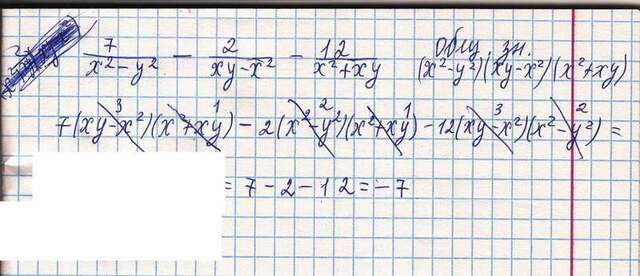 7/(x²-y²) - 2/(xy-x²) - 12/(x²+xy) общ. зн. (x²-y²)(xy-x²)(x²+xy)
7(xy-x²)³(x²+xy)¹ - 2(x²-y²)²(x²+xy)¹ - 12(xy-x²)³(x²-y²)² =
= 7-2-12=-7